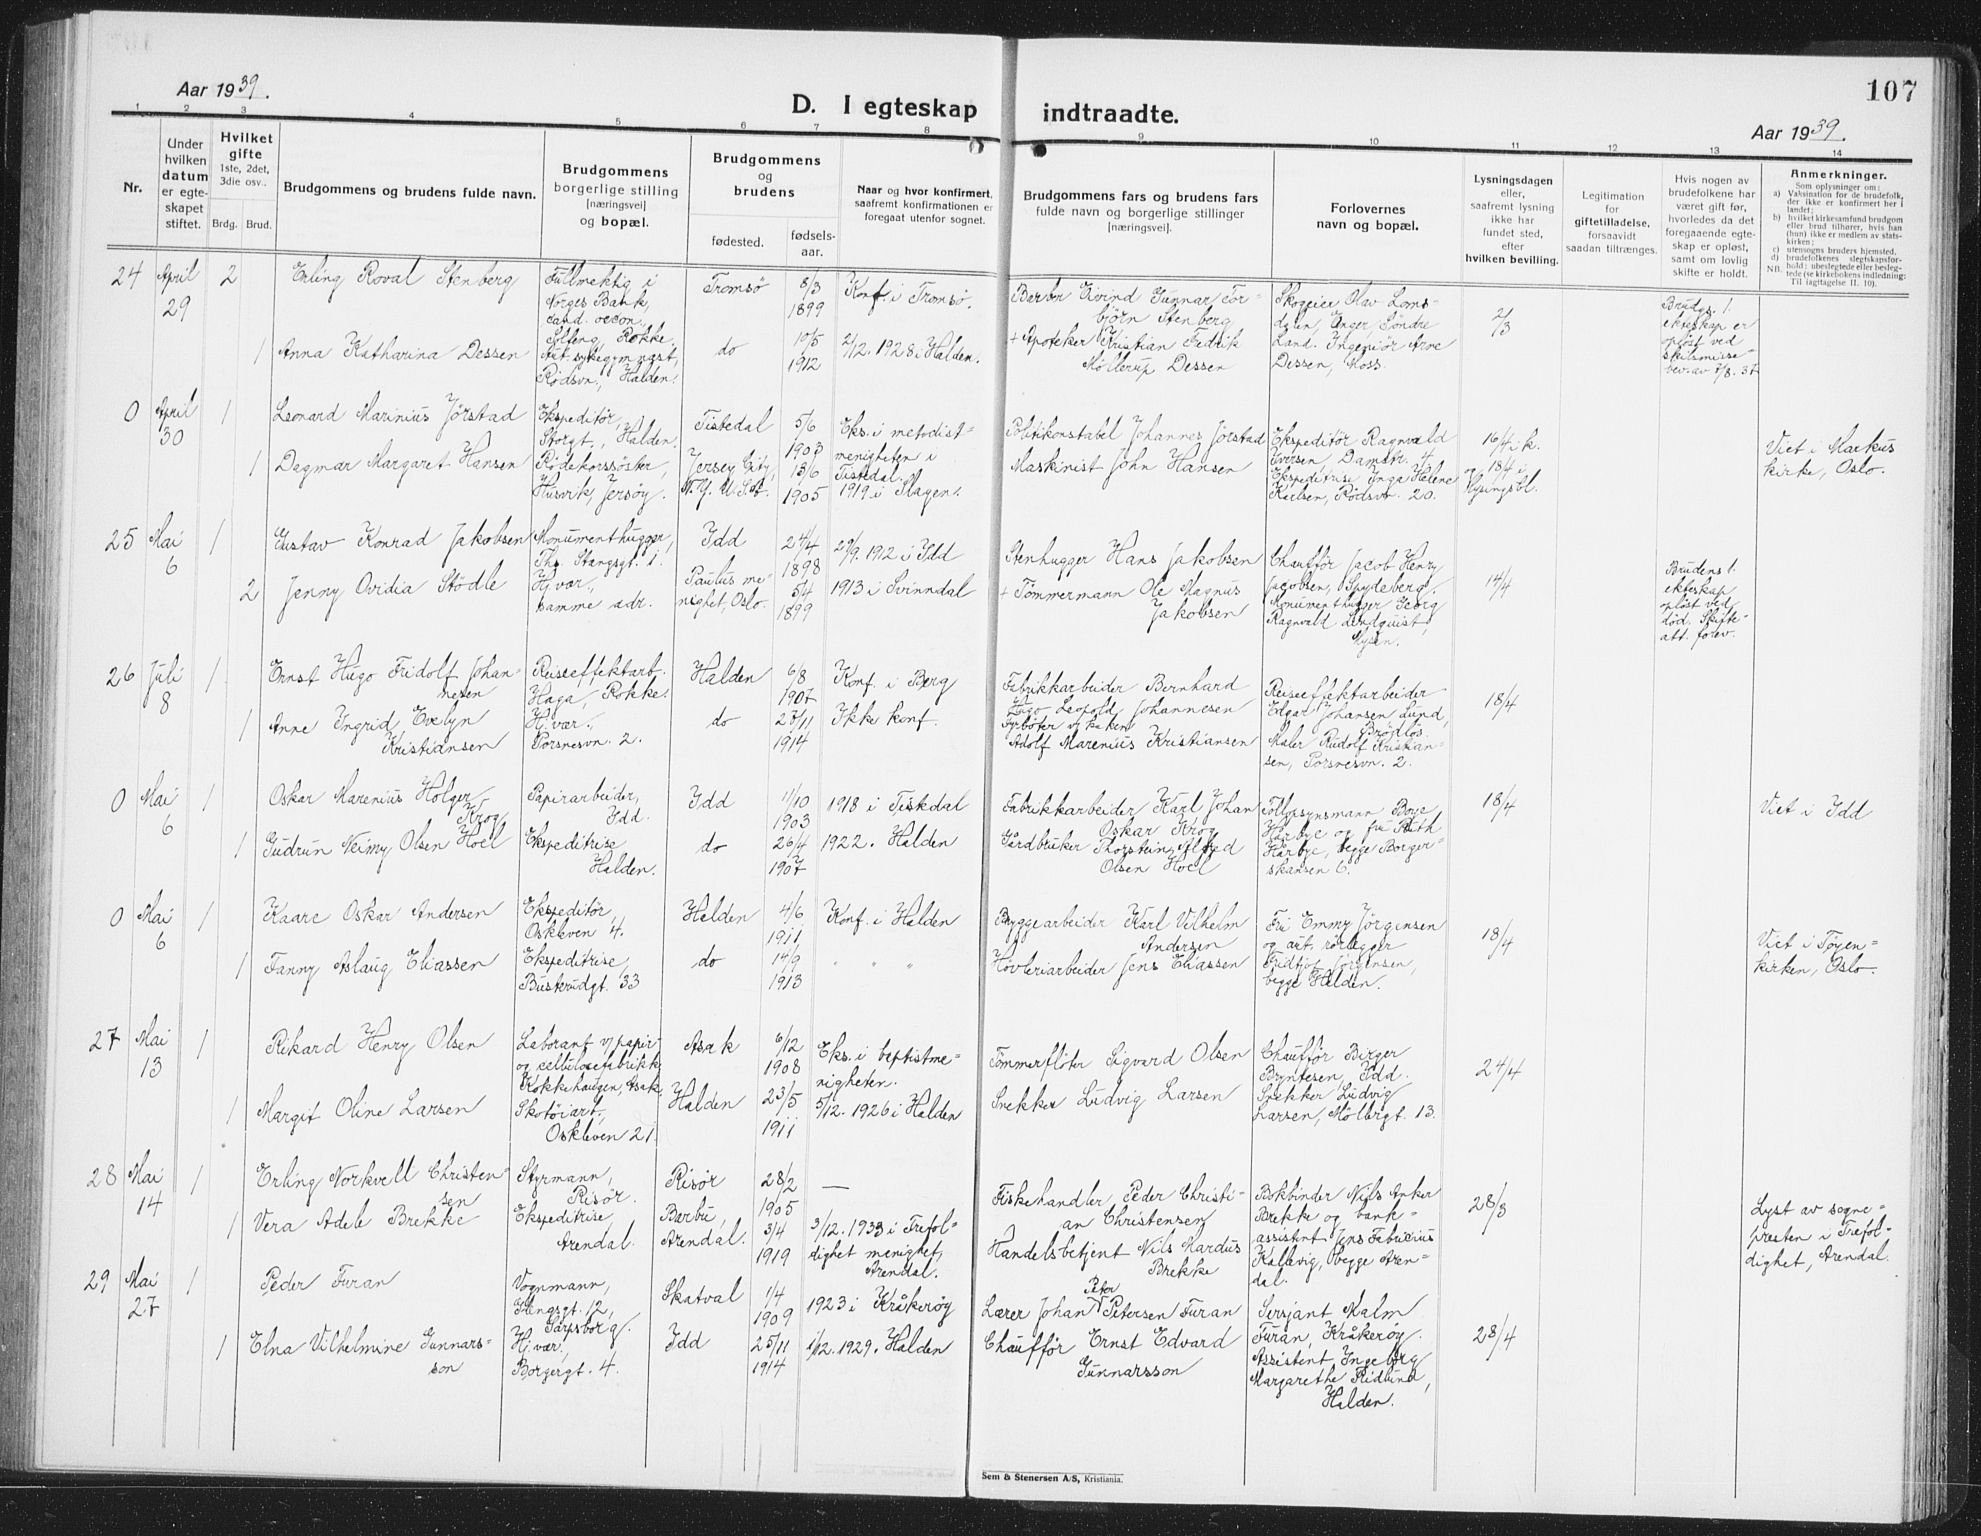 Aar 1939.
D. I egteskap indtraadte.
107
Aar 1939.
1 2 3 4 5 6 7 8 9 10 11 12 13 14
Nr.
Under hvilken datum er egteskapet stiftet.
Hvilket gifte
1ste, 2det, 3die osv..
Brdg. Brud.
Brudgommens og brudens fulde navn.
Brudgommens borgerlige stilling [næringsvei] og bopæl.
Brudgommens og brudens
fødested.
fødselsaar.
Naar og hvor konfirmert, saafremt konfirmationen er foregaat utenfor sognet.
Brudgommens fars og brudens fars fulde navn og borgerlige stillinger [næringsvei].
Forlovernes navn og bopæl.
Lysningsdagen eller, saafremt lysning ikke har fundet sted, efter hvilken bevilling.
Legitimation for giftetilladelse, forsaavidt saadan tiltrænges.
Hvis nogen av brudefolkene har været gift før, hvorledes da det foregaaende egteskap er opløst, samt om lovlig skifte er holdt.
Anmerkninger.
Som oplysninger om:
a) Vaksination for de brudefolk, der ikke er konfirmert her i landet;
b) hvilket kirkesamfund brudgom eller brud tilhører, hvis han (hun) ikke er medlem av statskirken;
c) utensogns bruders hjemsted.
d) brudefolkenes slegtskapsforhold: ubeslegtede eller beslegtede (se kirkebokens indledning: Til iagttagelse II. 10).
NB.
24 April 29 2 Erling Roval Stenberg
Fullmektig i Norges Bank, cand. oecon., Solfeng, Rokke.
Tromsø 8/3 1899 Konf. i Tromsø.
Barber Eivind Gunnar Torbjörn Stenberg
Skogeier Olav Lomsdalen, Enger, Söndre Land. Ingeniör Arne Dessen, Moss.
2/3
Brudgs. 1. ekteskap er opløst ved skilsmissebev. av 7/8. 37
1 Anna Katharina Dessen
Aut. sykegymnast, Rødsvn., Halden.
do 10/5 1912 2/12. 1928 i Halden.
+ Apoteker Kristian Fredrik Möllerup Dessen
0 April 30 1 Leonard Marinius Jörstad
Ekspeditör, Storgt., Halden.
Tistedal 5/6 1903 Eks. i metodistmenigheten i Tistedal.
Politikonstabel Johannes Jörstad
Ekspeditör Ragnvald Iversen, Damstr. 4
Ekspeditrise Inga Helene Karlsen, Rødsvn. 20.
16/4 i k. og 18/4 i lysingsbl.
Viet i Markus kirke, Oslo.
1 Dagmar Margaret Hansen
Rödekorssöster, Husvik, Jersöy.
Jersey City, N.Y. U.S.A. 13/6 1905 1919 i Slagen.
Maskinist John Hansen
25 Mai 6 1 Gustav Konrad Jakobsen
Monumenthugger, Ths. Stangsgt. 1.
Idd 24/4 1898 29/9. 1912 i Idd
Stenhugger Hans Jakobsen
Chaufför Jacob Henry Jacobsen, Spydeberg.
Monumenthugger Georg Ragnvald Lindquist, Mysen.
14/4
Brudens 1. ekteskap opløst ved død. Skifteatt. forev.
2 Jenny Ovidia Stödle
Hj. vær., samme adr.
Paulus menighet, Oslo. 5/4 1899 1913 i Svinndal
+ Tömmermann Ole Magnus Jakobsen
26 Juli 8 1 Ernst Hugo Fridolf Johannesen
Reiseeffektarb. Haga, Rokke.
Halden 6/8 1907 Konf. i Berg
Fabrikkarbeider Bernhard Hugo Leopold Johannesen
Reiseeffektarbeider Edgar Johansen Lund, Brödlös.
Maler Rudolf Kristiansen, Porsnesvn. 2.
18/4
1 Anne Ingrid Evelyn Kristiansen
Hj. vær., Porsnesvn. 2.
do 27/11 1914 Ikke konf.
Fyrböter Adolf Marenius Kristiansen
0 Mai 6 1 Oskar Marenius Holger Krog
Papirarbeider, Idd.
Idd 11/10 1903 1918 i Tistedal
Fabrikkarbeider Karl Johan Oskar Krog
Tollopsynsmann Boye Hårbye og fru Ruth Hårbye, begge Borgerskansen 6.
18/4
Viet i Idd
1 Gudrun Neimy Olsen Hoel
Ekspeditrise Halden.
do 26/4 1907 1922. Halden
Gårdbruker Thorstein Alfred Olsen Hoel
0 Mai 6 1 Kaare Oskar Andersen
Ekspeditör, Oskleven 4.
Halden 4/6 1911 Konf. i Halden
Bryggearbeider Karl Vilhelm Andersen
Fru Emmy Jörgensen og aut. rørlegger Fridtjof Jörgensen, begge Halden.
18/4
Viet i Töyenkirken, Oslo.
1 Fanny Aslaug Eliassen
Ekspeditrise, Buskrudgt. 33
do 14/9 1913 " " "
Hövleriarbeider Jens Eliassen
27 Mai 13 1 Rikard Henry Olsen
Laborant v/ papir- og cellulosefabrikk, Kokkehaugen, Asak.
Asak 6/12 1908 Eks. i baptistmenigheten.
Tömmerflöter Sigvard Olsen
Chaufför Birger Bryntesen, Idd.
Snekker Ludvig Larsen, Mölbrgt. 13.
24/4
1 Margit Oline Larsen
Skotöiarb., Oskleven 21.
Halden 23/5 1911 5/12. 1926 i Halden
Snekker Ludvig Larsen
28 Mai 14 1 Erling Norkvell Christensen
Styrmann, Risör.
Risör 28/2 1905 —
Fiskehandler Peder Christian Christensen
Bokbinder Nils Anker Brekke og bankassistent Jens Fabricius Kallevig, begge Arendal.
28/3
Lyst av sognepresten i Trefoldighet, Arendal.
1 Vera Adele Brekke
Ekspeditrise, Arendal.
Barbu, Arendal. 3/4 1919 3/12. 1933 i Trefoldighet menighet, Arendal.
Handelsbetjent Nils Mardus Brekke
29 Mai 27 1 Peder Furan
Vognmann, Kingsgt. 12, Sarpsborg.
Skatval 1/4 1909 1923 i Kråkerøy
Lærer Johan Peter Petersen Furan
Sersjant Malm Furan, Kråkerøy.
Assistent Ingeborg Margarethe Ridlund, Halden.
28/4
1 Elna Vilhelmine Gunnarsson
Hj. vær., Borgergt. 4.
Idd 25/11 1914 1/12. 1929. Halden
Chaufför Ernst Edvard Gunnarsson
Sem & Stenersen A/S, Kristiania.